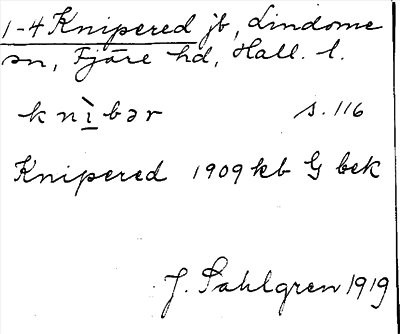 1-4 Knipered jb, Lindome
sn, Fjäre hd, Hall. l.
k n ì b ə r s. 116
Knipered 1909 kb G bek
J. Sahlgren 1919